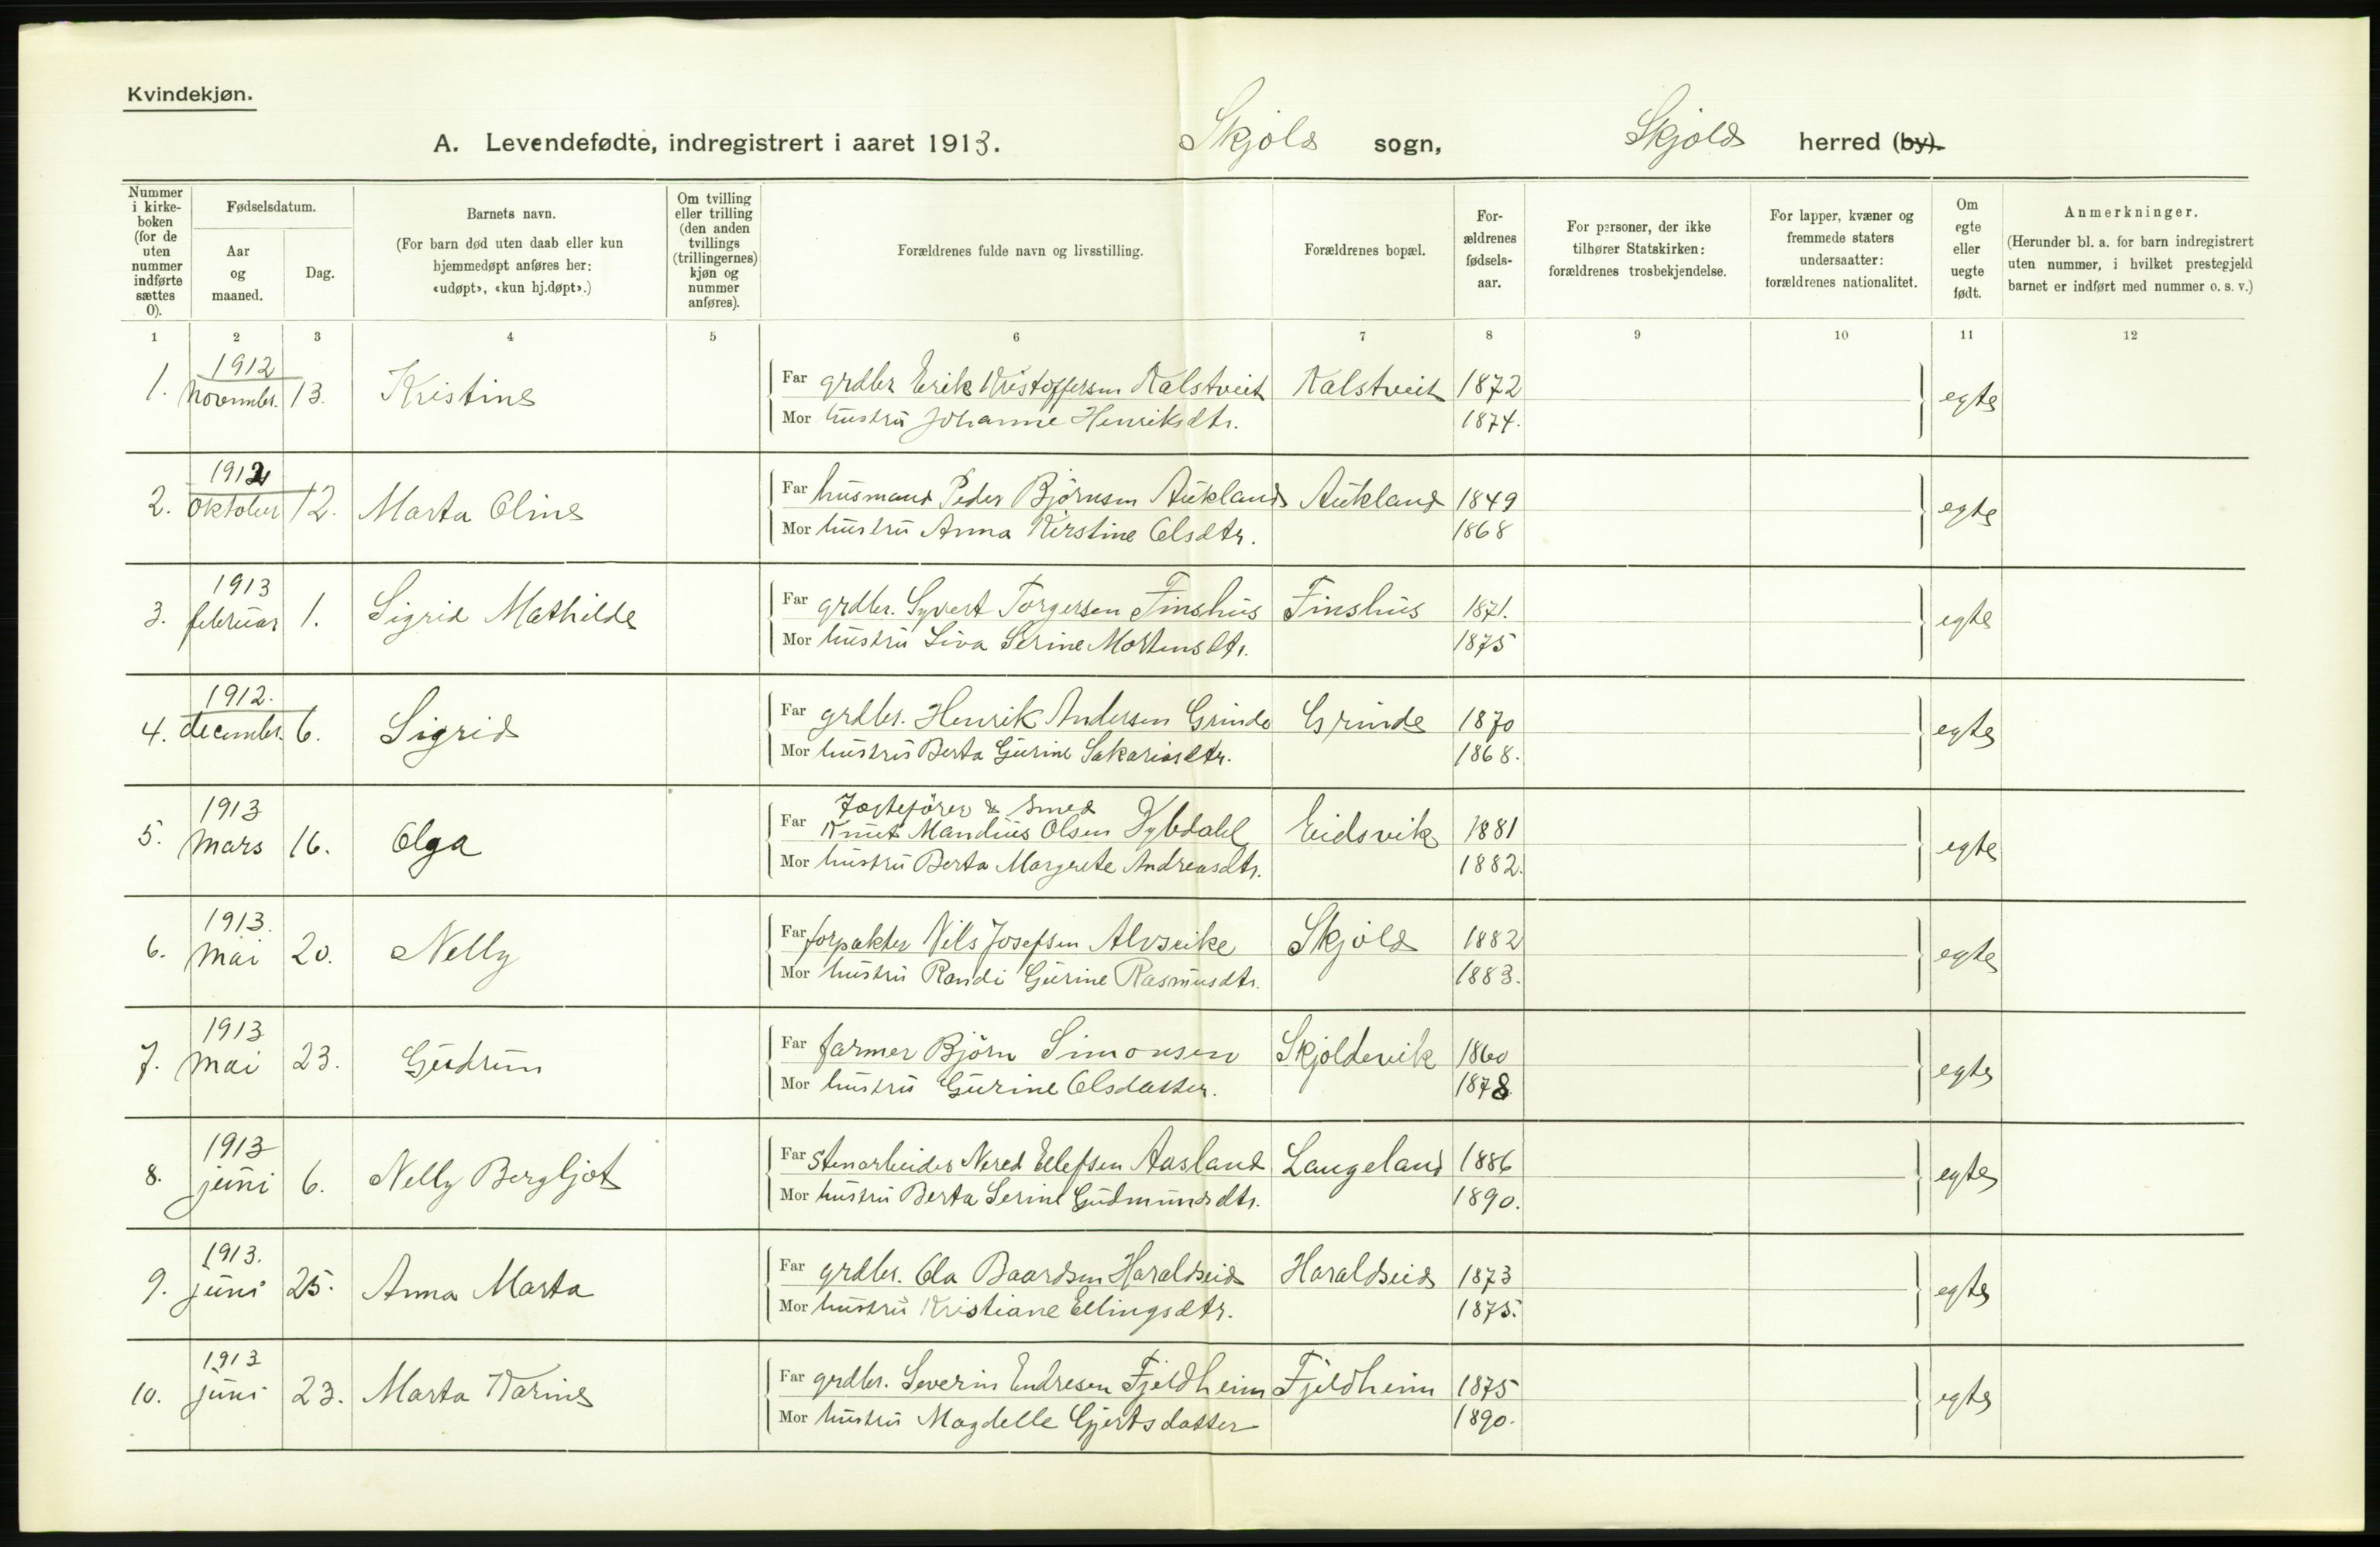 Kvindekjøn.
A. Levendefødte, indregistrert i aaret 1913. Skjold sogn, Skjold herred (by).
Nummer i kirke-boken (for de uten nummer indførte sættes 0).
Fødselsdatum.
Aar og maaned.
Dag.
Barnets navn.
(For barn død uten daab eller kun hjemmedøpt anføres her: «udøpt», «kun hj.døpt».)
Om tvilling eller trilling (den anden tvillings (trillingernes) kjøn og nummer anføres).
Forældrenes fulde navn og livsstilling.
Forældrenes bopæl.
For-ældrenes fødsels-aar.
For personer, der ikke tilhører Statskirken: forældrenes trosbekjendelse.
For lapper, kvæner og fremmede staters undersaatter: forældrenes nationalitet.
Om egte eller uegte født.
Anmerkninger.
(Herunder bl. a. for barn indregistrert uten nummer, i hvilket prestegjeld barnet er indført med nummer o. s. v.)
1 2 3 4 5 6 7 8 9 10 11 12
1. 1912 November. 13. Kristine Far grdbr Erik Kristoffersen Kalstveit Kalstveit 1872 egte
Mor hustru Johanne Henriksdtr. 1874.
2. 1912 Oktober 12. Marta Oline Far husmand Peder Björnsen Aukland Aukland 1849 egte
Mor hustru Anna Kirstine Olsdtr. 1868
3. 1913 februar 1. Sigrid Mathilde Far grdbr. Syvert Torgersen Finshus Finshus 1871. egte
Mor hustru Siva Serine Mortensdtr. 1875
4. 1912. decembr. 6. Sigrid Far grdbr. Henrik Andersen Grinde Grinde 1870 egte
Mor hustru Berta Gurine Sakariasdtr. 1868.
5. 1913 Mars 16. Olga Far Jægtefører & smed Knut Mandius Olsen Dybdahl Eidsvik 1881 egte
Mor hustru Berta Margrete Andreasdtr. 1882.
6. 1913. Mai 20. Nelly Far forpakter Nils Josefsen Alvseike Skjold 1882 egte
Mor hustru Randi Gurine Rasmusdtr. 1883.
7. 1913 Mai 23. Gudrun Far farmer Björn Simonsen Skjoldevik 1860 egte
Mor hustru Gurine Olsdatter. 1878
8. 1913 juni 6. Nelly Bergljot Far Stenarbeider Nered Ellefsen Aasland Langeland 1886 egte
Mor hustru Berta Serine Gudmundsdtr. 1890.
9. 1913. juni 25. Anna Marta Far grdbr. Ola Baardsen Haraldseid Haraldseid 1873 egte
Mor hustru Kristiane Ellingsdtr. 1875.
10. 1913 juni 23. Marta Karine Far grdbr. Severin Endresen Fjeldheim Fjeldheim 1875 egte
Mor hustru Magdelle Gjertsdatter 1890.